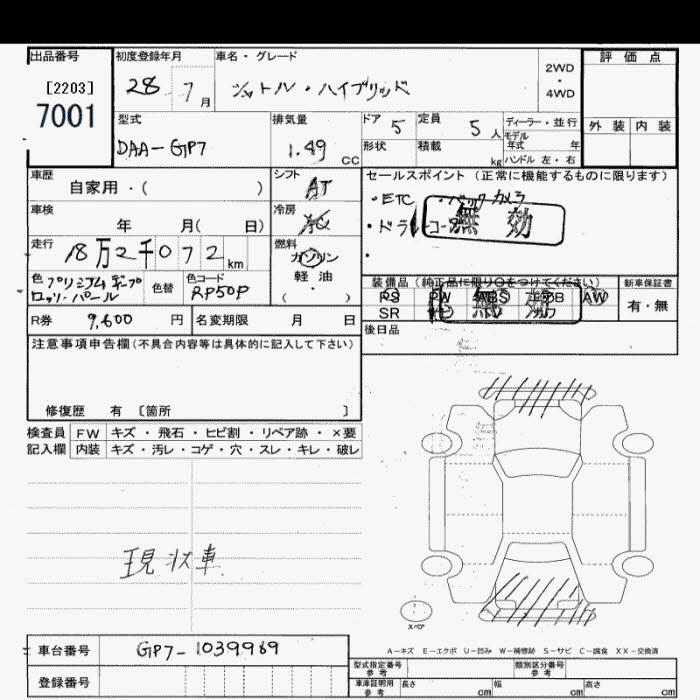 出品番号
[2203]
7001
初度登録年月
28 7月
車名・グレード
シャトル・ハイブリッド
2WD
・
4WD
評価点
外装 内装
型式
DAA-GP7
排気量
1.49 CC
ドア 5
定員 5人
ディーラー・並行
形状
積載 kg
モデル年式 年
ハンドル 左・右
車歴 自家用・( )
シフト AT
セールスポイント (正常に機能するものに限ります)
・ETC ・バックカメラ
・ドラレコ
無効
・
車検 年 月( 日)
冷房 AC
走行 18万2千072km
燃料
ガソリン
軽・油
・( )
色 プリズアム ディープ
ロッソ・パール
色替
色コード
RP50P
装備品 (純正品に限り〇をつけてください)
PS PW ABS エアB AW
SR
無効
カワ
新車保証書
有・無
R券 9,600 円
名変期限 月 日
後日品
注意事項申告欄(不具合内容等は具体的に記入して下さい)
修復歴 有 〔箇所 〕
検査員 FW キズ・飛石・ヒビ割・リペア跡・×要
記入欄 内装 キズ・汚レ・コゲ・穴・スレ・キレ・破レ
現状車
スペア
A－キズ E－エクボ U－凹み W－補修跡 S－サビ C－腐食 XX－交換済
車台番号 GP7-1039969
登録番号
型式指定番号 参考
類別区分番号 参考
車庫証明用 参考
長さ cm
幅 cm
高さ cm